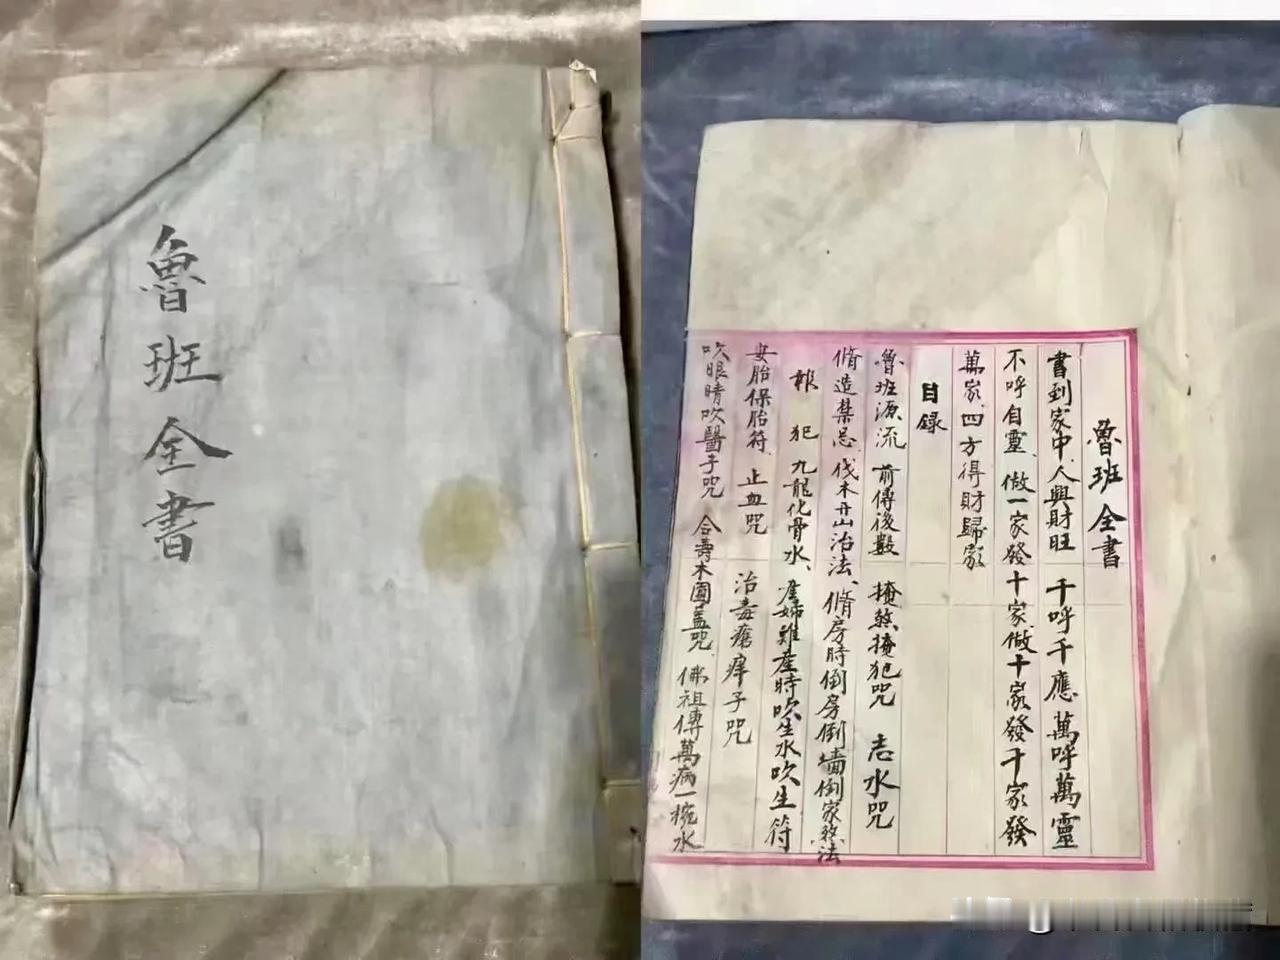 魯班全書
魯班全書
書到家中人興財旺 千呼千應萬呼萬靈
不呼自靈 做一家發十家做十家發千家發
萬家四方得財歸家
目錄
魯班源流 前傳後教 掩煞掩犯咒 志水咒
脩造禁忌、伐木開山治法、脩房時倒房倒墻倒家煞法
犯 九龍化骨水、產婦難產時吹生水吹生符
安胎保胎符 止血咒 治毒瘡痒子咒
吹眼睛吹醫子咒 合壽木圓蓋咒 佛祖傳萬病一椀水